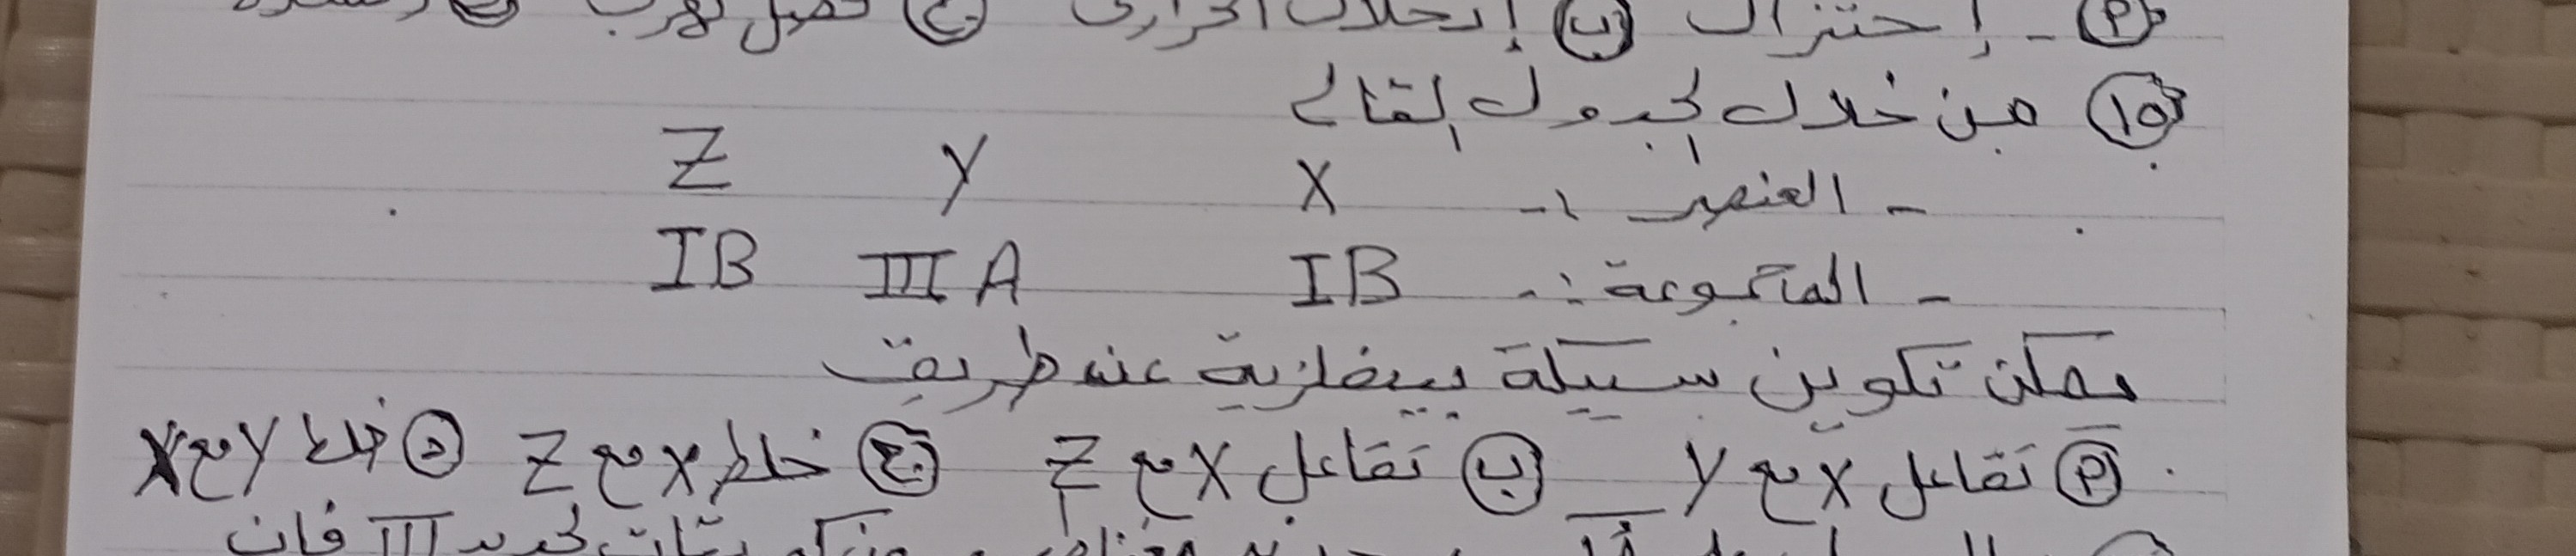 (أ) - إختزال (ب) إنحلال حرارى (ج) فصل كهربى
(١٥) من خلال لجدول لتالى
- العنصر :- X Y Z
- المجموعة :- IB IIIA IB
يمكن تكوين سبيكة بيفلزية عند طريق
(أ) تفاعل X مع Y (ب) تفاعل X مع Z (ج) خلط X مع Z (د) خلط Y مع X
III فإن